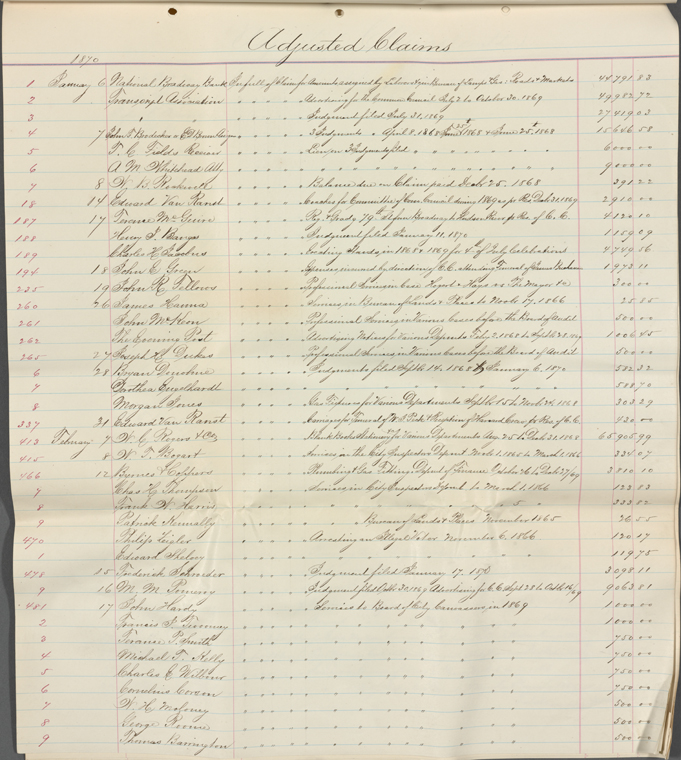 Adjusted Claims
1870
1 January 6 National Broadway Bank In full of Claim for Amounts assigned by Bureau of Lamps & Gas: Roads & Markets 44791 83
2 Transcript Association " " " Advertising for the Common Council July 2 to October 30. 1869 49982 72
3 " " " " Judgment filed July 31. 1869 27419 03
4 7 " " " 3 Judgments April 8. 1868 June 1868 & June 25th 1868 15646 58
5 T. C. Fields " " " 6000 00
6 A. M. Whitehead " " " " 9000 00
7 8 W. B. " " " Balance due on Claim paid Decbr 25. 1868 391 22
18 14 Edward Van Ranst " " " Coaches for Committees of Com. Council during 1869 2910 00
187 17 Terence McGuire " " " 79th st from Broadway to 4120 10
188 Henry J. " " " Judgment filed January 11. 1870 1159 09
189 Charles H. " " " in 1868 & 1869 for 4th of July Celebrations 4749 56
194 18 John E. Green " " " Expenses incurred by direction of C.C. attending Funeral of 1973 11
235 19 John R. Fellows " " " Professional Services in Case vs The Mayor &c 300 00
260 26 James Hanna " " " Services in Bureau of Lands & Places to Novbr 17. 1866 25 55
261 John McKeon " " " Professional Services in Various Cases before the Board of Audit 500 00
262 The Evening Post " " " Advertising Notices for Various Departmts July 2. 1868 to Septbr 28. 1869 1006 45
265 27 Joseph H. Dukes " " " Professional Services in Various Cases before the Board of Audit 500 00
6 28 Bryan " " " Judgments filed Septbr 14. 1868 & January 6. 1870 532 32
7 Dorothea " " " " " 588 70
8 Morgan Jones " " " Gas Fixtures for Various Departments Septbr 15 to Novbr 24. 1868 303 29
337 31 Edward Van Ranst " " " Carriages for Funeral of & Reception of 430 00
413 February 7 W. C. Rogers & Co " " " Blank Books Stationery for Various Departments Aug. 25 to Decbr 31. 1868 65905 99
415 8 W. T. Bogart " " " Services in the City Inspectors Departmt Novbr 1. 1865 to March 1. 1866 334 07
466 12 " " " Plumbing & Gas Fitting Departmt of Finance October 26 to Decbr 27/69 3810 10
7 Chas H. Thompson " " " Services in City Inspectors Departmt to March 1. 1866 123 83
8 Frank W. " " " " " 333 32
9 Patrick " " " Bureau of Lands & Places November 1865 26 55
470 Philip Zeigler " " " Arresting an Illegal Voter November 6. 1866 120 17
1 Edward " " " " 119 75
478 15 Frederick Schroeder " " " Judgment filed January 17. 1870 3098 11
9 16 M. M. Pomeroy " " " Judgment filed Octbr 30. 1869 Advertising for C.C. Sept 28 to Octbr 16/69 9063 81
481 17 John Hardy " " " Services to Board of City Canvassers in 1869 1000 00
2 Francis J. Twomey " " " " 1000 00
3 Terence P. Smith " " " " 750 00
4 Michael T. Kelly " " " " 750 00
5 Charles C. " " " " 750 00
6 Cornelius Corson " " " " 750 00
7 W. H. Moloney " " " " 500 00
8 George " " " " 500 00
9 Thomas Barrington " " " " 500 00